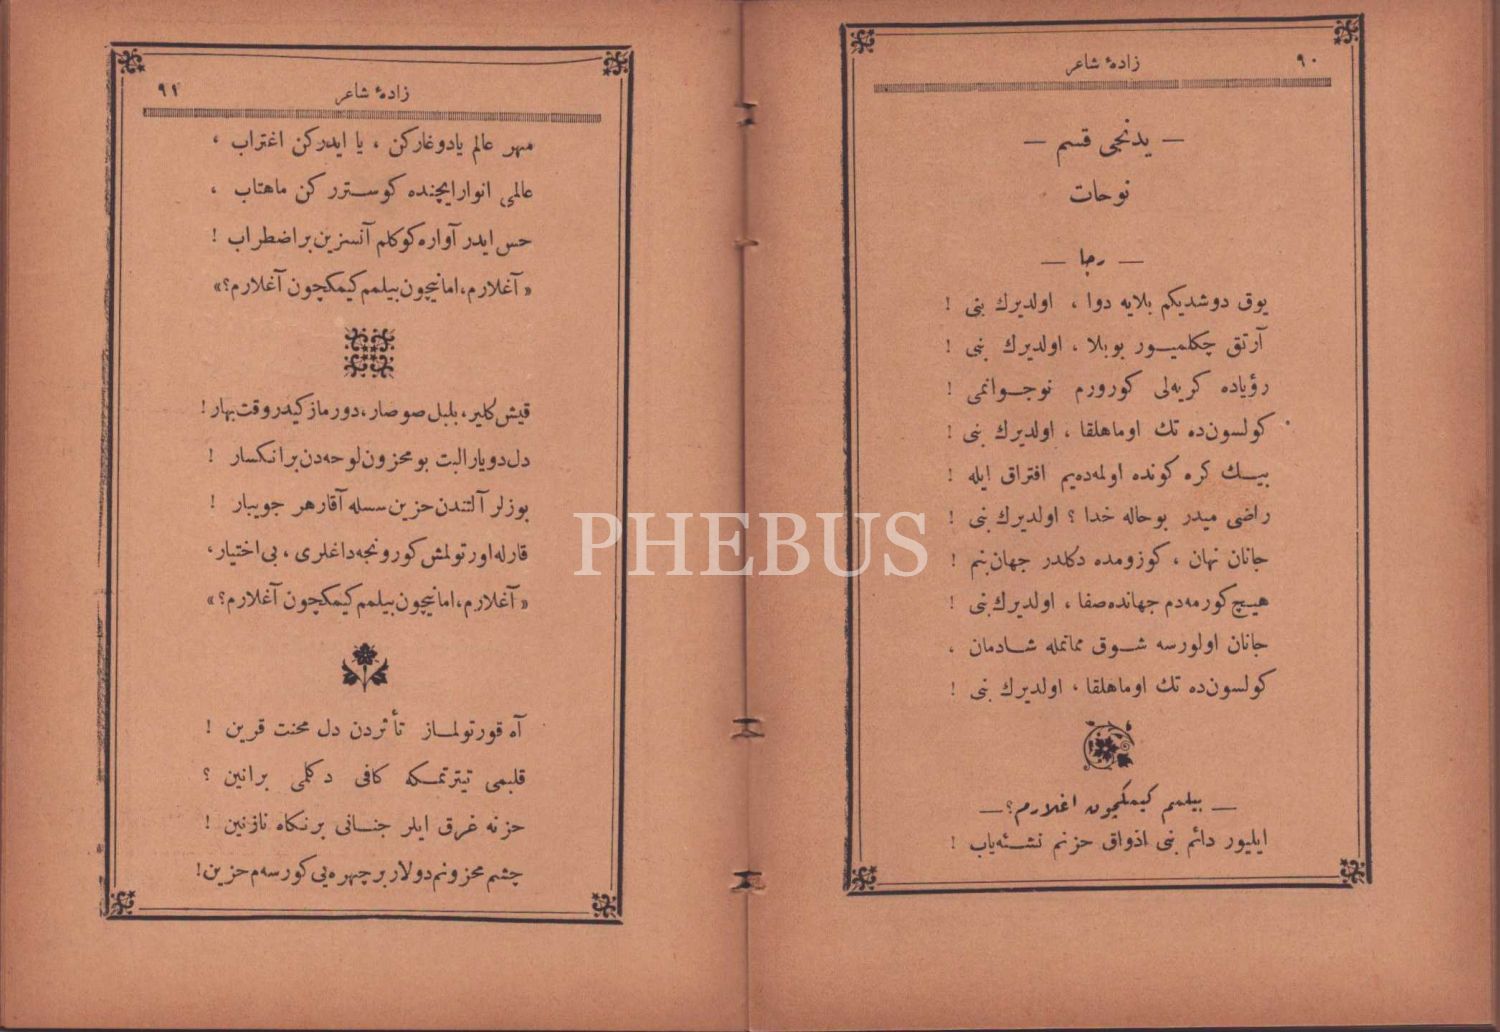 ٩٠
زادهٔ شاعر
— یدنجی قسم —
نوحات
— رجا —
یوق دوشدیكم بلایه دوا ، اولدیرك بنی !
آرتق چكلمیور بوبلا ، اولدیرك بنی !
رؤیاده كریه‌لی كورورم نوجوانمی !
كولسون‌ده تك اوماهلقا ، اولدیرك بنی !
بیك كره كونده اولمه‌ده‌یم افتراق ایله !
راضی میدر بوحاله خدا ؟ اولدیرك بنی !
جانان نهان ، كوزومده دكلدر جهان بنم !
هیچ كورمه‌دم جهانده صفا ، اولدیرك بنی !
جانان اولورسه شوق مماتمله شادمان ،
كولسون‌ده تك اوماهلقا ، اولدیرك بنی !
— بیلمم كیمكچون اغلارم ؟ —
ایلیور دائم بنی اذواق حزنم نشئه‌یاب !
زادهٔ شاعر
٩١
مهر عالم یادوغاركن ، یا ایدركن اغتراب ،
عالمی انوار ایچنده كوسترركن ماهتاب ،
حس ایدر آواره كوكلم آنسزین بر اضطراب !
« آغلارم ، امانیچون بیلمم كیمكچون آغلارم ؟ »
قیش كلیر ، بلبل صوصار ، دورماز كیدر وقت بهار !
دل دویار البت بومحزون لوحه‌دن بر انكسار !
بوزلر آلتندن حزین سسله آقار هر جویبار !
قارله اورتولمش كورونجه داغلری ، بی اختیار ،
« آغلارم ، امانیچون بیلمم كیمكچون آغلارم ؟ »
آه قورتولماز تأثردن دل محنت قرین !
قلبمی تیترتمكه كافی دكلمی بر انین ؟
حزنه غرق ایلر جنانی بر نكاه نازنین !
چشم محزونم دولار بر چهره‌یی كورسه‌م حزین !
PHEBUS